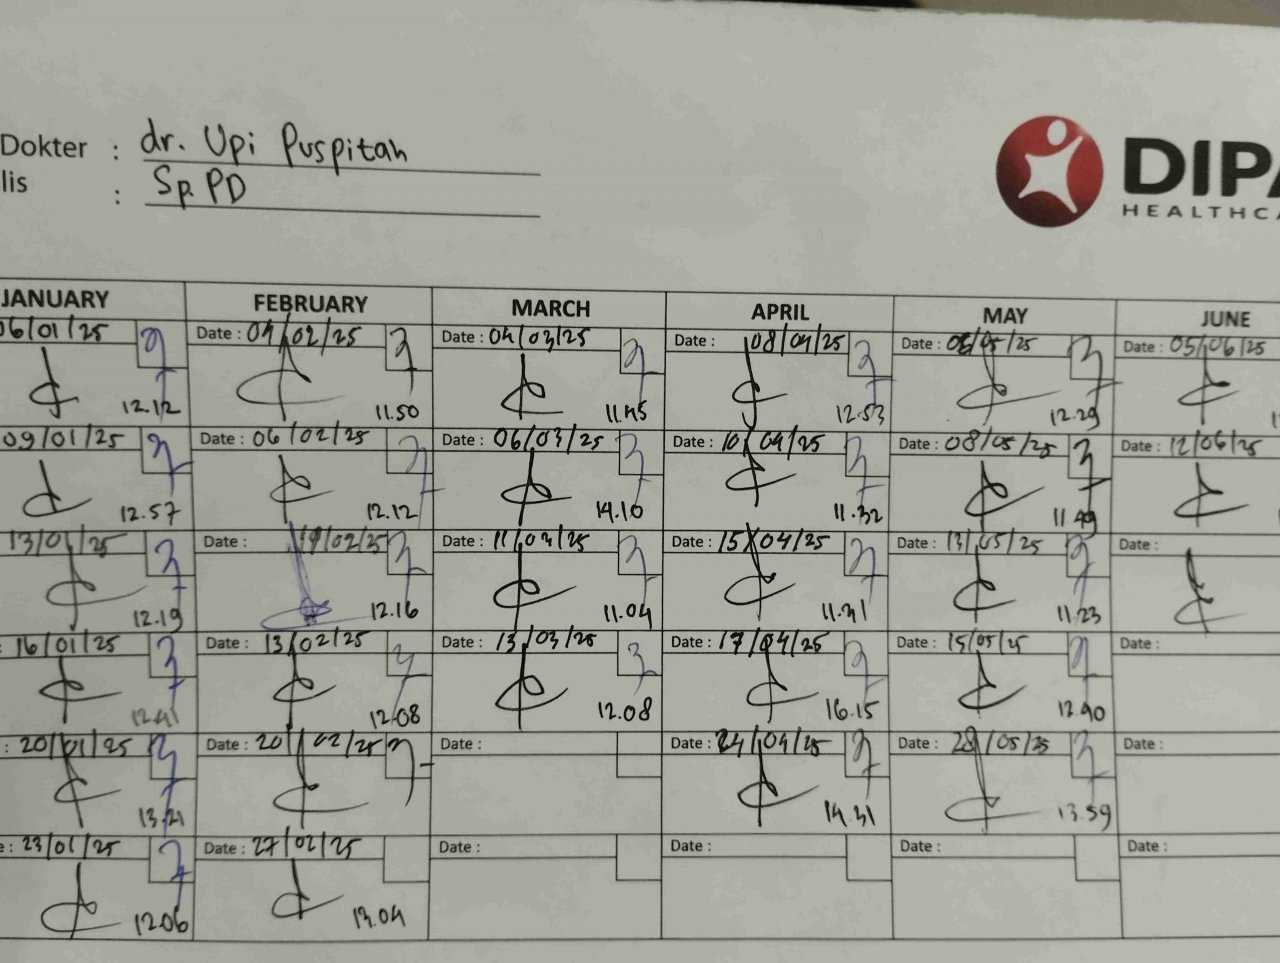 Dokter : dr. Upi Puspitah
lis : Sp.PD
DIPA
HEALTHCA
JANUARY FEBRUARY MARCH APRIL MAY JUNE
06/01/25 Date : 04/02/25 Date : 04/03/25 Date : 08/04/25 Date : Date : 05/06/25
12.12 11.50 11.45 12.53 12.29
09/01/25 Date : 06/02/25 Date : 06/03/25 Date : 10/04/25 Date : 08/05/25 Date : 12/06/25
12.57 12.12 14.10 11.32 11.49
13/01/25 Date : Date : 11/03/25 Date : 15/04/25 Date : 13/05/25 Date :
12.19 12.16 11.04 11.41 11.23
: 16/01/25 Date : 13/02/25 Date : 13/03/25 Date : 17/04/25 Date : 15/05/25 Date :
12.41 12.08 12.08 16.15 12.40
: 20/01/25 Date : 20/02/25 Date : Date : 24/04/25 Date : /05/25 Date :
13.21 14.31 13.59
e : 23/01/25 Date : 27/02/25 Date : Date : Date : Date :
12.06 13.04